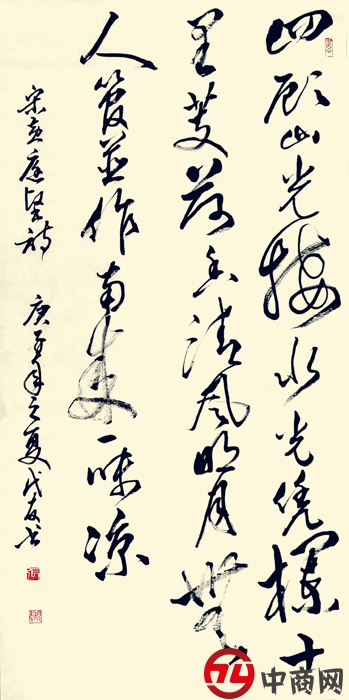 四顾山光接水光凭欄十
里芰荷香清风明月無
人管並作南来一味凉
宋黄庭坚诗 庚子年之夏
中商网